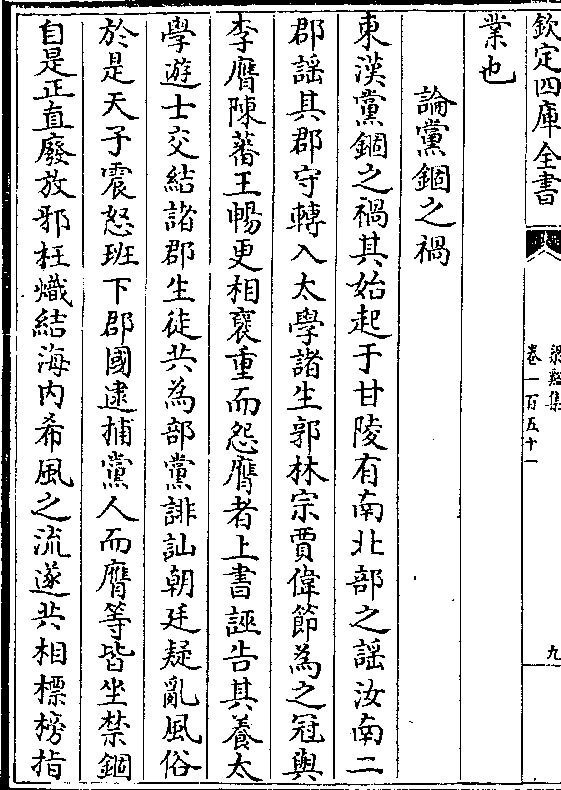 欽定四庫全書
梁谿集
卷一百五十一
九
業也
論黨錮之禍
東漢黨錮之禍其始起于甘陵有南北部之謡汝南二
郡謡其郡守轉入太學諸生郭林宗賈偉節為之冠與
李膺陳蕃王暢更相襃重而怨膺者上書誣告其養太
學遊士交結諸郡生徒共為部黨誹訕朝廷疑亂風俗
於是天子震怒班下郡國逮捕黨人而膺等皆坐禁錮
自是正直廢放邪枉熾結海内希風之流遂共相標榜指